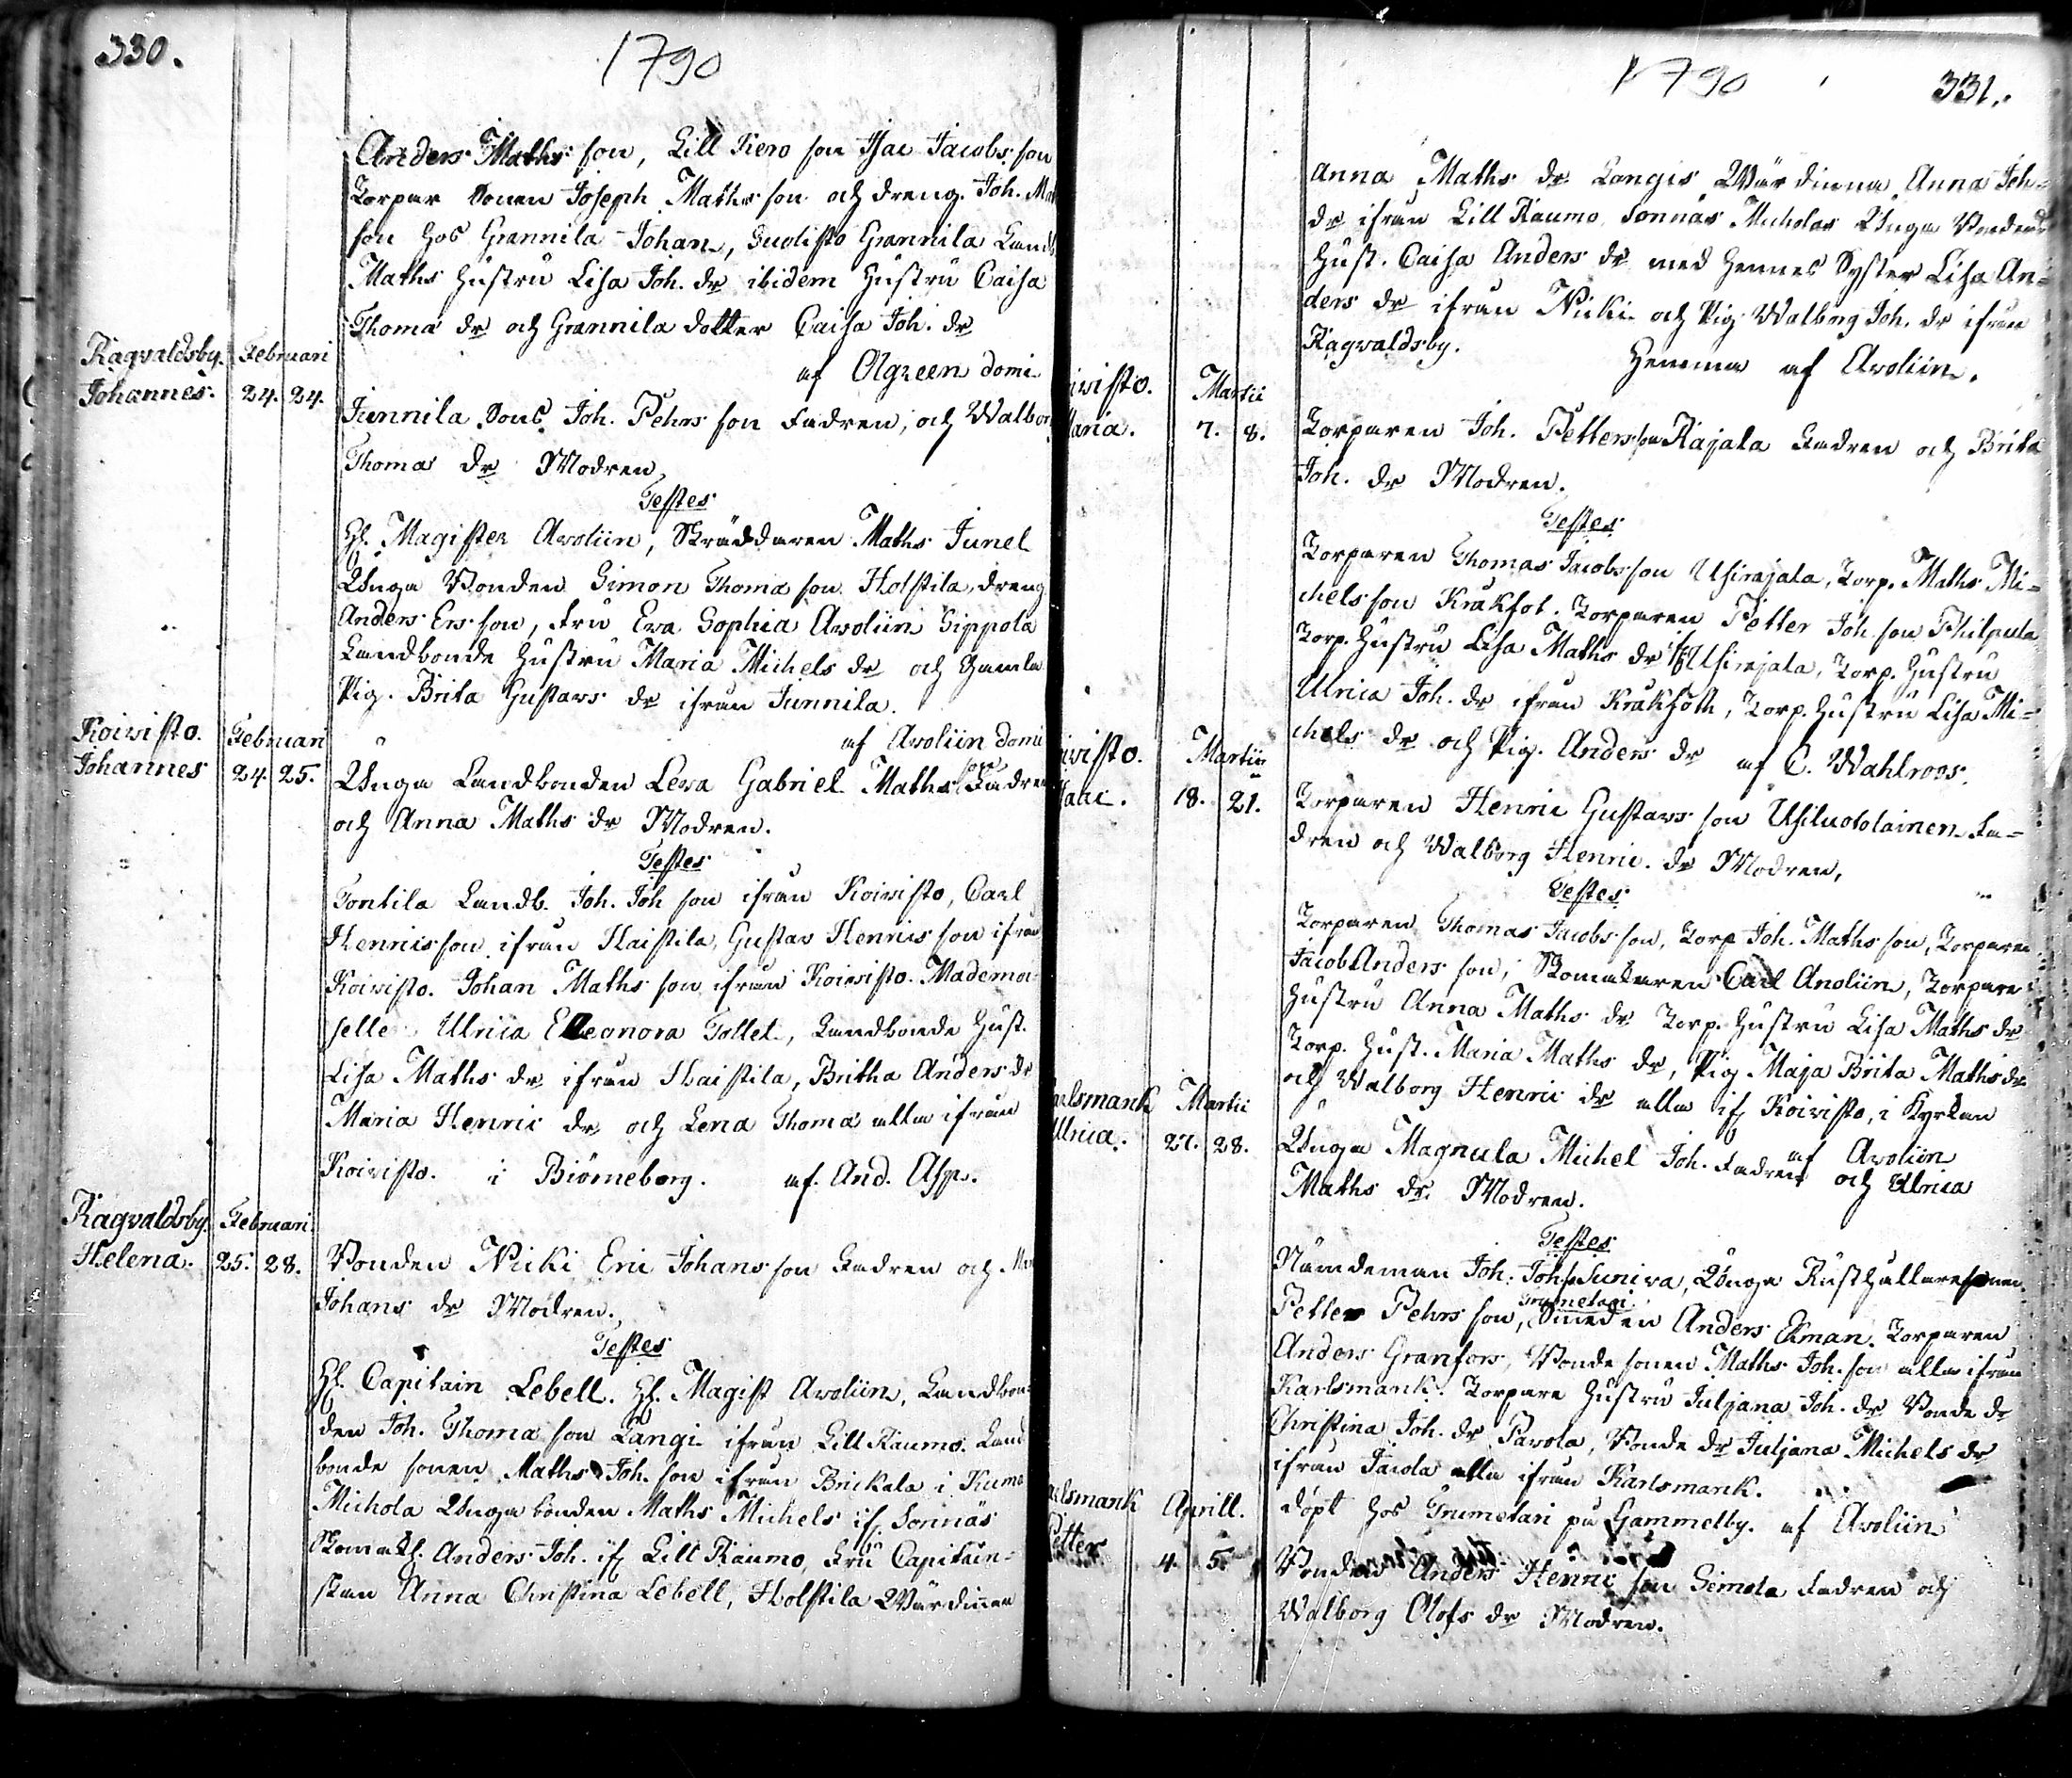 330.
1790
Anders Maths son, Lill Kero son Isac Jacobs son
Torpar Sonen Joseph Maths son och dreng. Joh. Mat
son hos Grannila Johan, Suolisto Grannila Landb.
Maths Hustru Lisa Joh. dr ibidem Hustru Caisa
Thoma dr och Grannila dotter Caisa Joh. dr
af Algreen domi
Ragvaldsby. Februari
Johannes. 24. 24.
Junnila Sons Joh. Pehrs son Fadren, och Walbor
Thoma dr Modren
Testes
H. Magister Avoliin, Skräddaren Maths Junel
Unga Bonden Simon Thoma son Holstila, dreng
Anders Ers son, Fru Eva Sophia Avoliin Sippola
Landbonde Hustru Maria Michels dr och Gamla
Pig. Brita Gustavs dr ifrån Junnila.
af Avoliin domi
Koivisto. Februari
Johannes 24. 25.
Unga Landbonden Leva Gabriel Maths son Fadren
och Anna Maths dr Modren.
Testes
Tontila Landb. Joh. Joh son ifrån Koivisto, Carl
Henrics son ifrån Haistila, Gustav Henrics son ifrån
Koivisto. Johan Maths son ifrån Koivisto. Mademoi=
selle Ulrica Eleonora Tollet, Landbonde Hust.
Lisa Maths dr ifrån Haistila, Britha Anders dr
Maria Henric dr och Lena Thoma alla ifrån
Koivisto. i Biörneborg. af And. Asp.
Ragvaldsby. Februari.
Helena. 25. 28.
Bonden Nicki Eric Johans son Fadren och Mar
Johans dr Modren.
Testes
H. Capitain Lebell. H. Magist Avoliin, Landbon=
den Joh. Thoma son Langi ifrån Lill Raumo. Land
bonde sonen Maths Joh. son ifrån Brickala i Kumo
Michola Unga bonden Maths Michels if. Sonnäs
Skomak. Anders Joh. if Lill Raumo, Fru Capitain=
skan Anna Christina Lebell, Holstila Wärdinnan
1790
331.
Anna Maths dr Langis Wärdinna Anna Joh=
dr ifrån Lill Raumo, Sonnäs Micholas Unga Bondens
Hust. Caisa Anders dr med hennes Syster Lisa An=
ders dr ifrån Nicki och Pig Walborg Joh. dr ifrån
Ragvaldsby. Hemma af Avoliin.
ivisto. Martii
aria. 7. 8.
Torparen Joh. Petters son Rajala Fadren och Brita
Joh. dr Modren.
Testes
Torparen Thomas Jacobs son Usirajala, Torp. Maths Mi=
chels son Kråkfot. Torparen Petter Joh. son Philpula
Torp. Hustru Lisa Maths dr if Usirajala, Torp. Hustru
Ulrica Joh. dr ifrån Kråkfoth, Torp. Hustru Lisa Mi=
chels dr och Pig. Anders dr af C. Wahlroos.
ivisto. Martii
saac. 18. 21.
Torparen Henric Gustavs son Usiluotolainen Fa=
dren och Walborg Henric. dr Modren,
Testes
Torparen Thomas Jacobs son, Torp Joh. Maths son, Torparen
Jacob Anders son, Skomakaren Carl Avoliin, Torpare
Hustru Anna Maths dr Torp. Hustru Lisa Maths dr
Torp. Hust. Maria Maths dr, Pig Maja Brita Maths dr
och Walborg Henric dr alla if Koivisto, i Kyrkan
af Avoliin
arlsmark Martii
Ulrica. 27. 28.
Unga Magnula Michel Joh. Fadren och Ulrica
Maths dr. Modren.
Testes
Nämdeman Joh. Joh s Suniva, Unga Rusthållare sonen
Petter Pehrs son, Smeden Grumetari Anders Ekman. Torparen
Anders Granfors, Bonde sonen Maths Joh. son alla ifrån
Karlsmark. Torpare Hustru Juljana Joh. dr Bonde dr
Christina Joh. dr Pavola, Bonde dr Juljana Michels dr
ifrån Jacola alla ifrån Karlsmark.
döpt hos Grumetari på Gammelby. af Avoliin
arlsmark Aprill.
Petter 4. 5.
Bonden Anders Henric son Simola Fadren och
Walborg Olofs dr Modren.